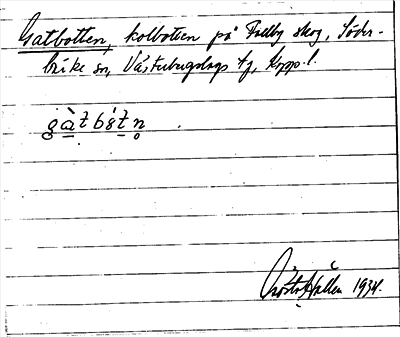 Gatbotten, kolbotten på Tolby skog, Söder-
bärke sn, Västerbergslags tg, Kopp. l.
gàtbótn
Gösta Hallen 1934.